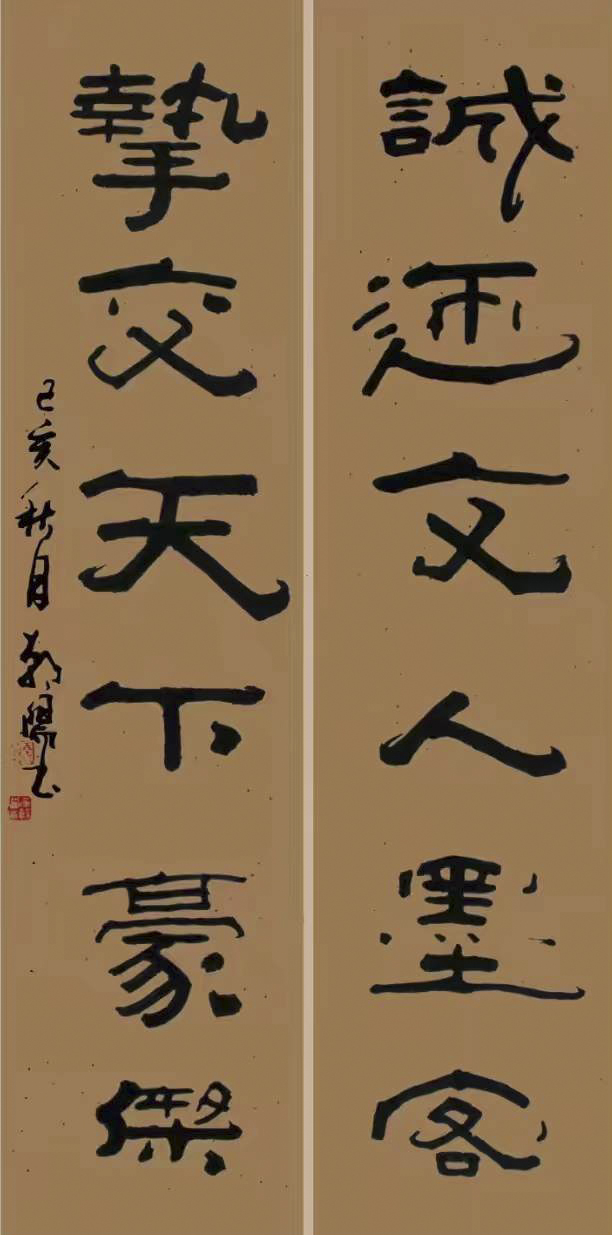 誠迎文人墨客
摯交天下豪傑
己亥秋月朝陽书